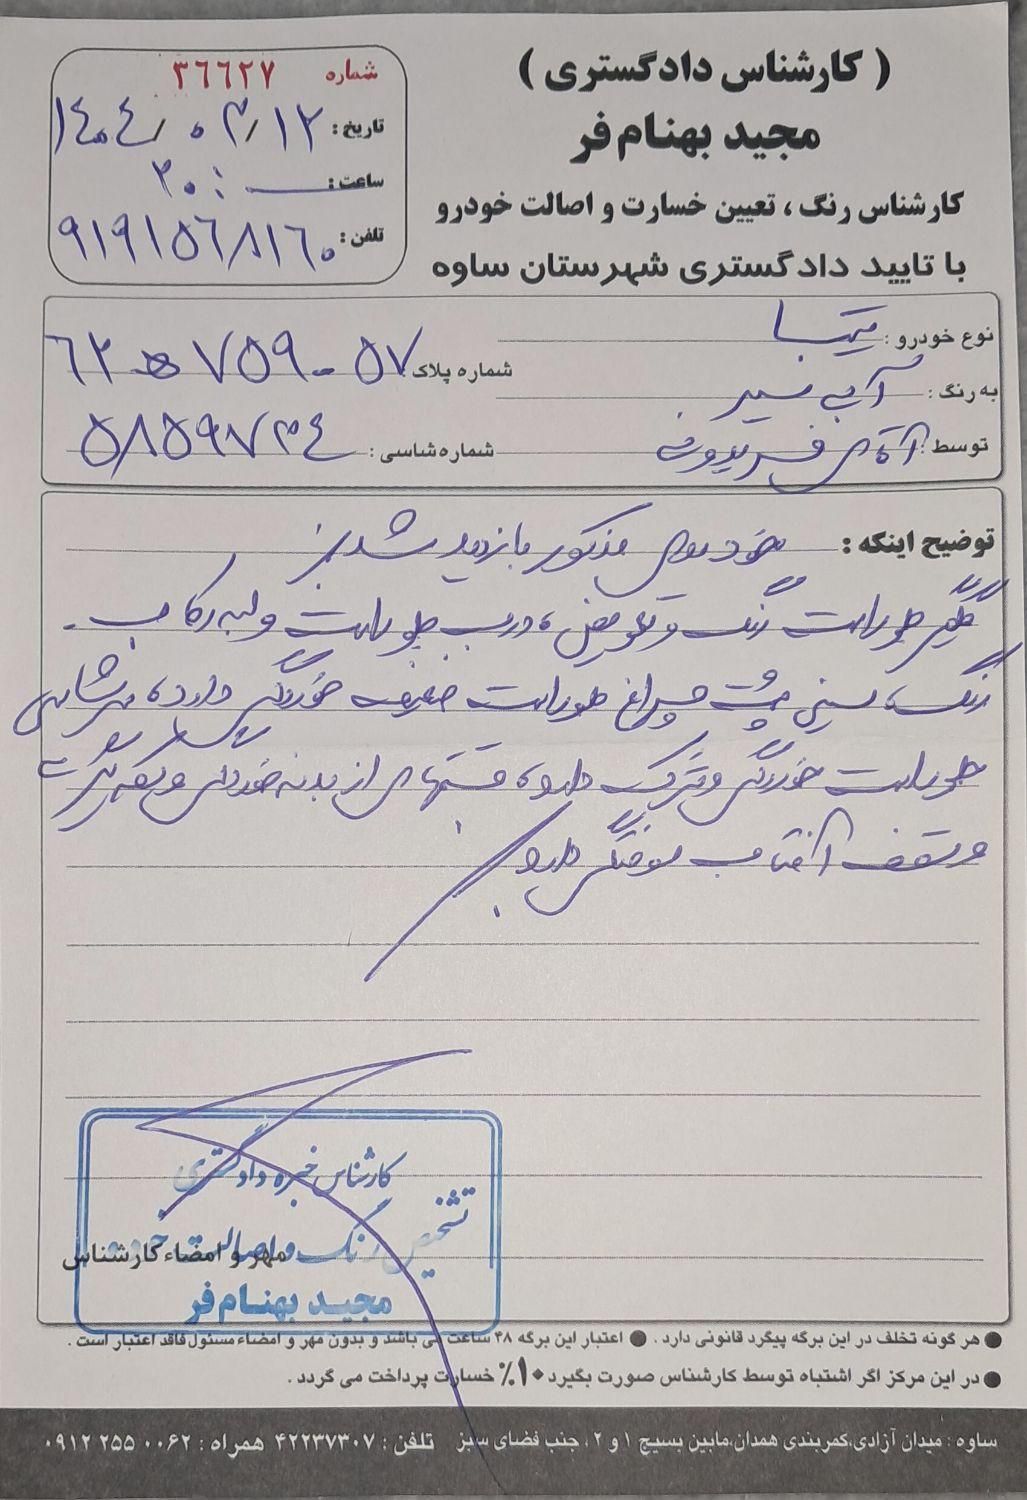 ( کارشناس دادگستری )
مجید بهنام‌فر
کارشناس رنگ ، تعیین خسارت و اصالت خودرو
با تایید دادگستری شهرستان ساوه
شماره ۳۶۶۲۷
تاریخ : ۱۴۰۴/۰۳/۱۲
ساعت : ۲۰:
تلفن : ۹۱۹۱۵۶۸۱۶۰
نوع خودرو : تیبا
شماره پلاک ۵۷ - ۷۵۹ ھ ۶۲
به رنگ : آبی سیر
توسط : آقای فریدونی
شماره شاسی : ۵۸۵۹۷۳۴
توضیح اینکه : خودروی مذکور بازدید شد:
گلگیر جلو راست رنگ و تعویض، درب جلو راست و لبه رکاب
رنگ، سینی پشت چراغ جلو راست ضعیف خوردگی دارد، سرشاسی
جلو راست خوردگی و ترک دارد، قسمتهای از بدنه خوردگی
و سقف آفتاب سوختگی دارد
کارشناس خبره دادگستری
تشخیص رنگ و اصالت خودرو
مهر و امضاء کارشناس
مجید بهنام‌فر
● هر گونه تخلف در این برگه پیگرد قانونی دارد . ● اعتبار این برگه ۴۸ ساعت می باشد و بدون مهر و امضاء مسئول فاقد اعتبار است .
● در این مرکز اگر اشتباه توسط کارشناس صورت بگیرد ۱۰٪ خسارت پرداخت می گردد .
ساوه : میدان آزادی،کمربندی همدان،مابین بسیج ۱ و ۲ ، جنب فضای سبز تلفن : ۴۲۲۳۷۳۰۷ همراه : ۰۹۱۲ ۲۵۵ ۰۰۶۲